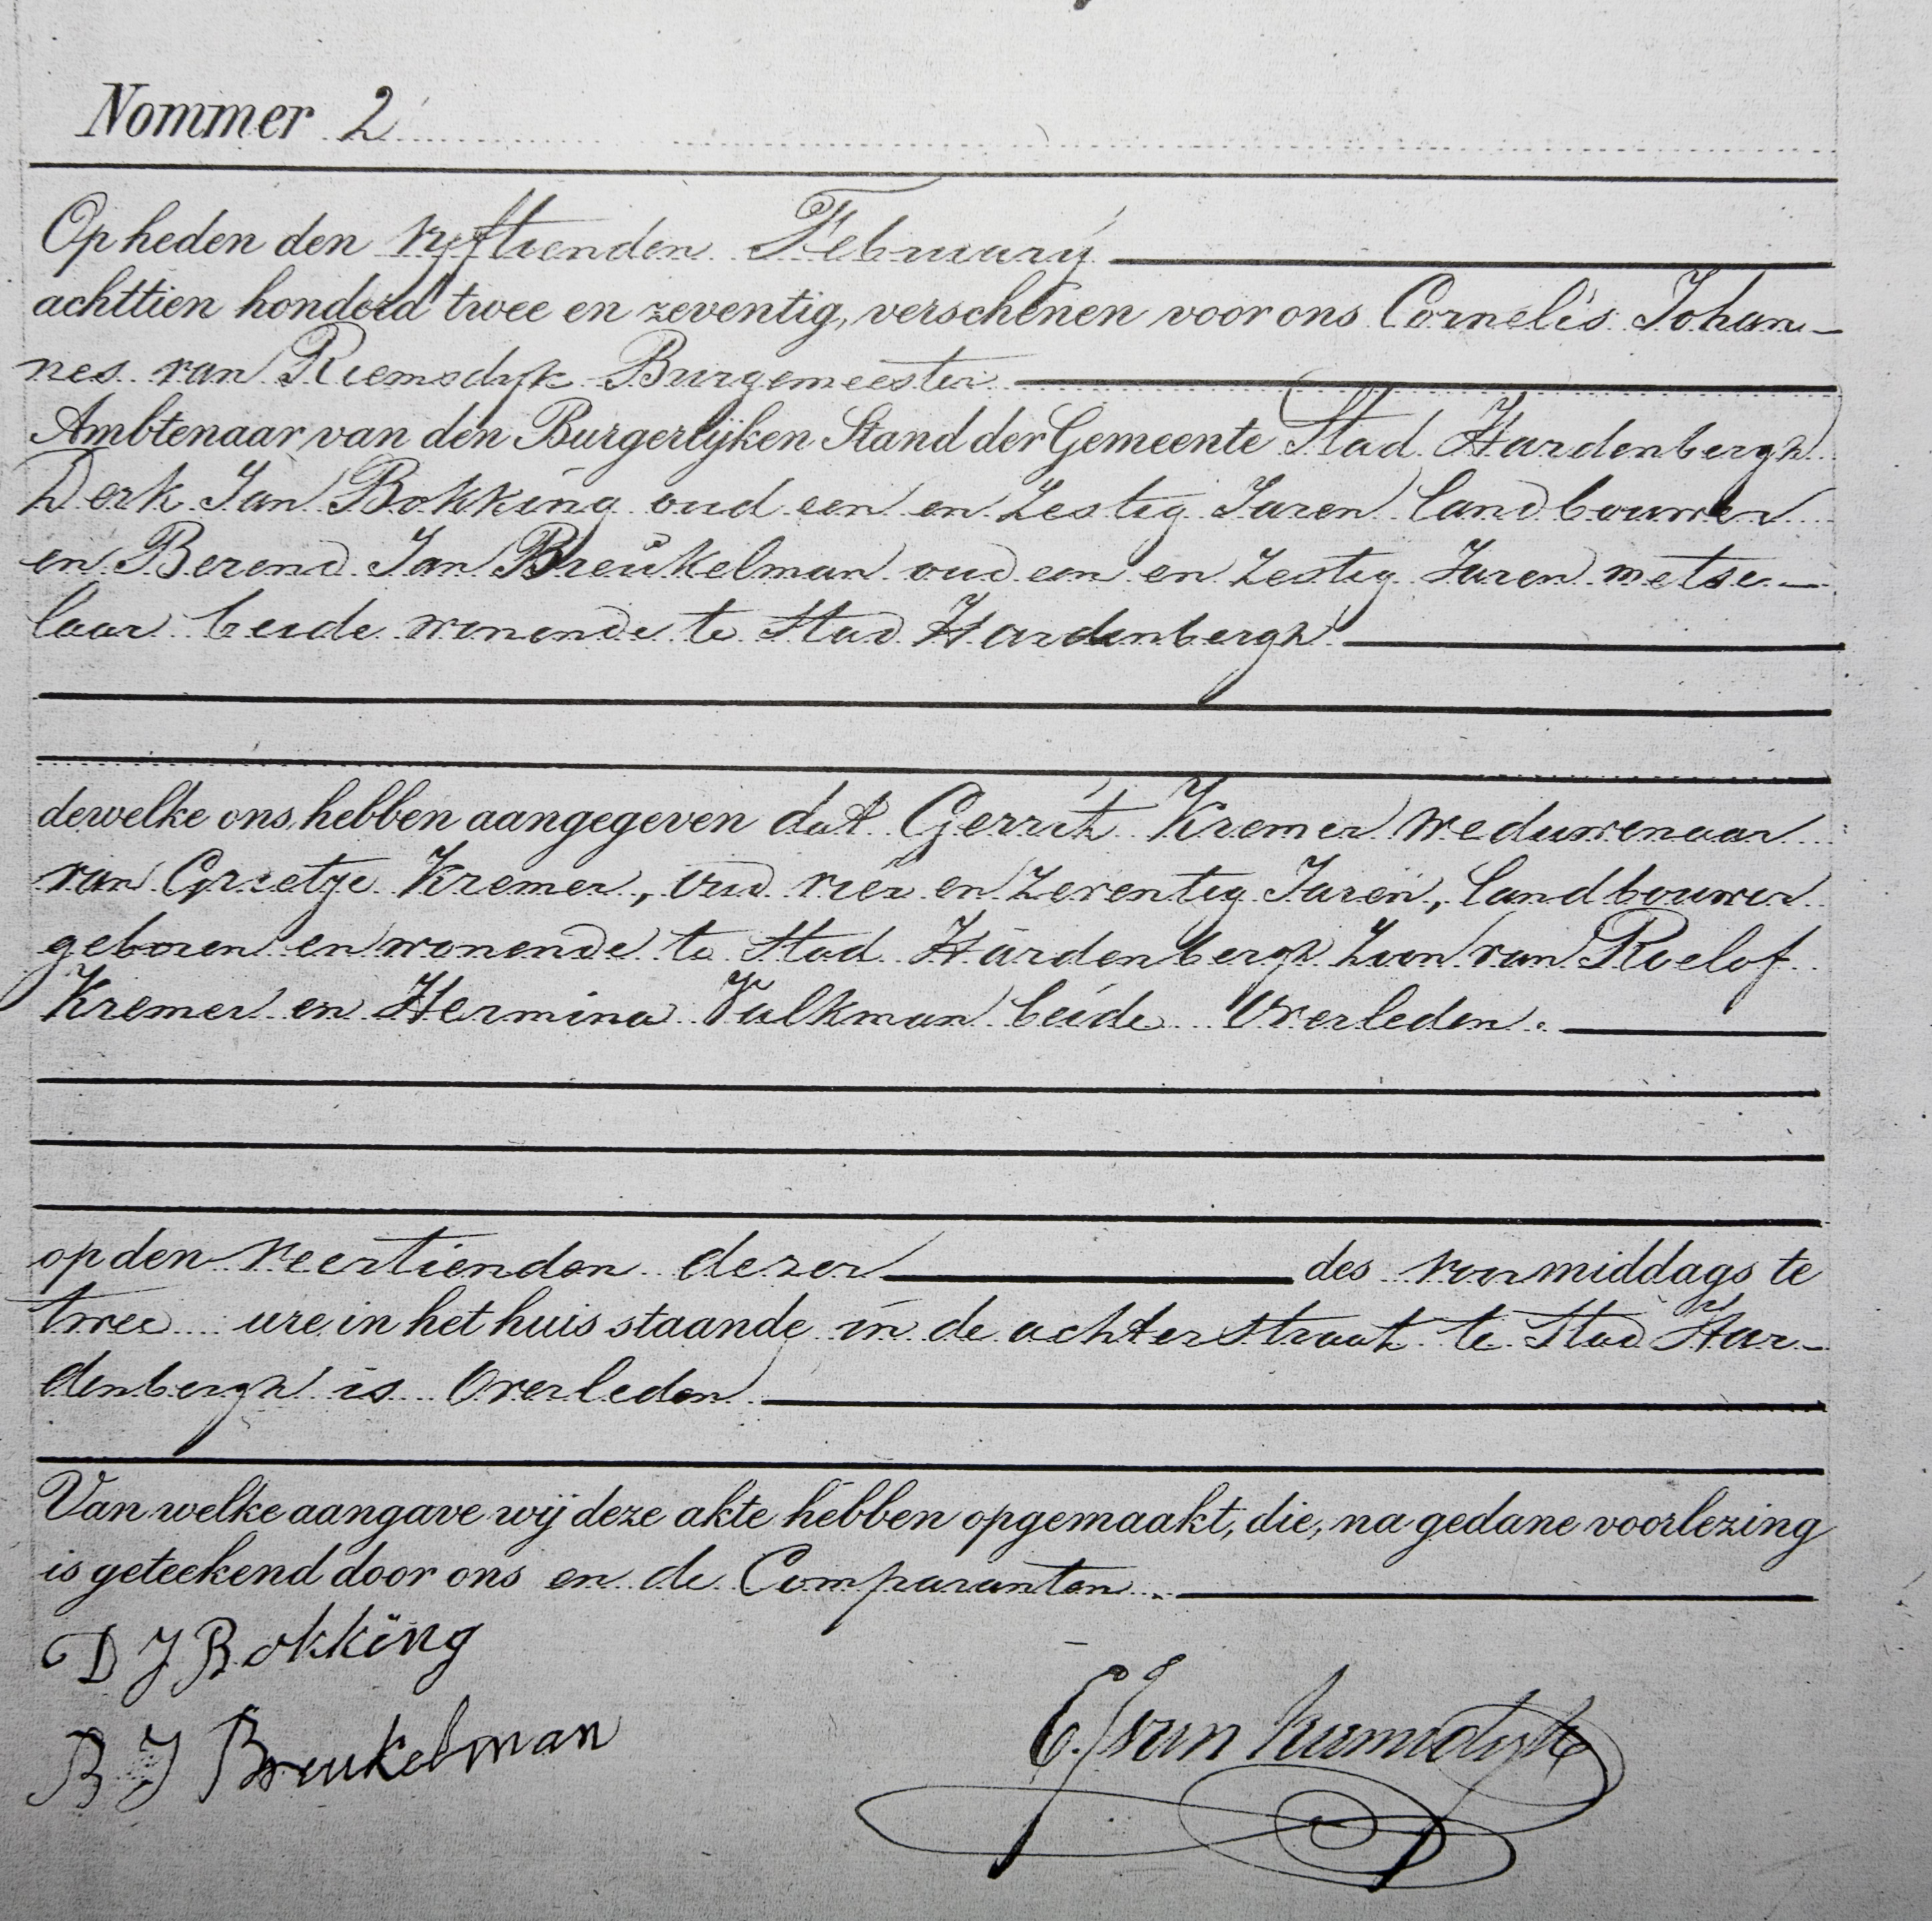 Nommer 2
Op heden den vyftienden February
achttien honderd twee en zeventig, verschenen voor ons Cornelis Johan-
nes van Riemsdyk Burgemeester
Ambtenaar van den Burgerlijken Stand der Gemeente Stad Hardenbergh
Derk Jan Bokking oud een en Zestig Jaren landbouwer
en Berend Jan Breukelman oud een en Zestig Jaren metse-
laar beide wonende te Stad Hardenbergh
dewelke ons hebben aangegeven dat Gerrit Kremer weduwenaar
van Grietje Kremer, oud vier en Zeventig Jaren, landbouwer
geboren en wonende te Stad Hardenbergh Zoon van Roelof
Kremer en Hermina Valkman beide Overleden.
op den veertienden dezer des voormiddags te
twee ure in het huis staande in de achterstraat te Stad Har-
denbergh is Overleden
Van welke aangave wij deze akte hebben opgemaakt, die, na gedane voorlezing
is geteekend door ons en de Comparanten.
D J Bokking
B J Breukelman
C J van Riemsdyk